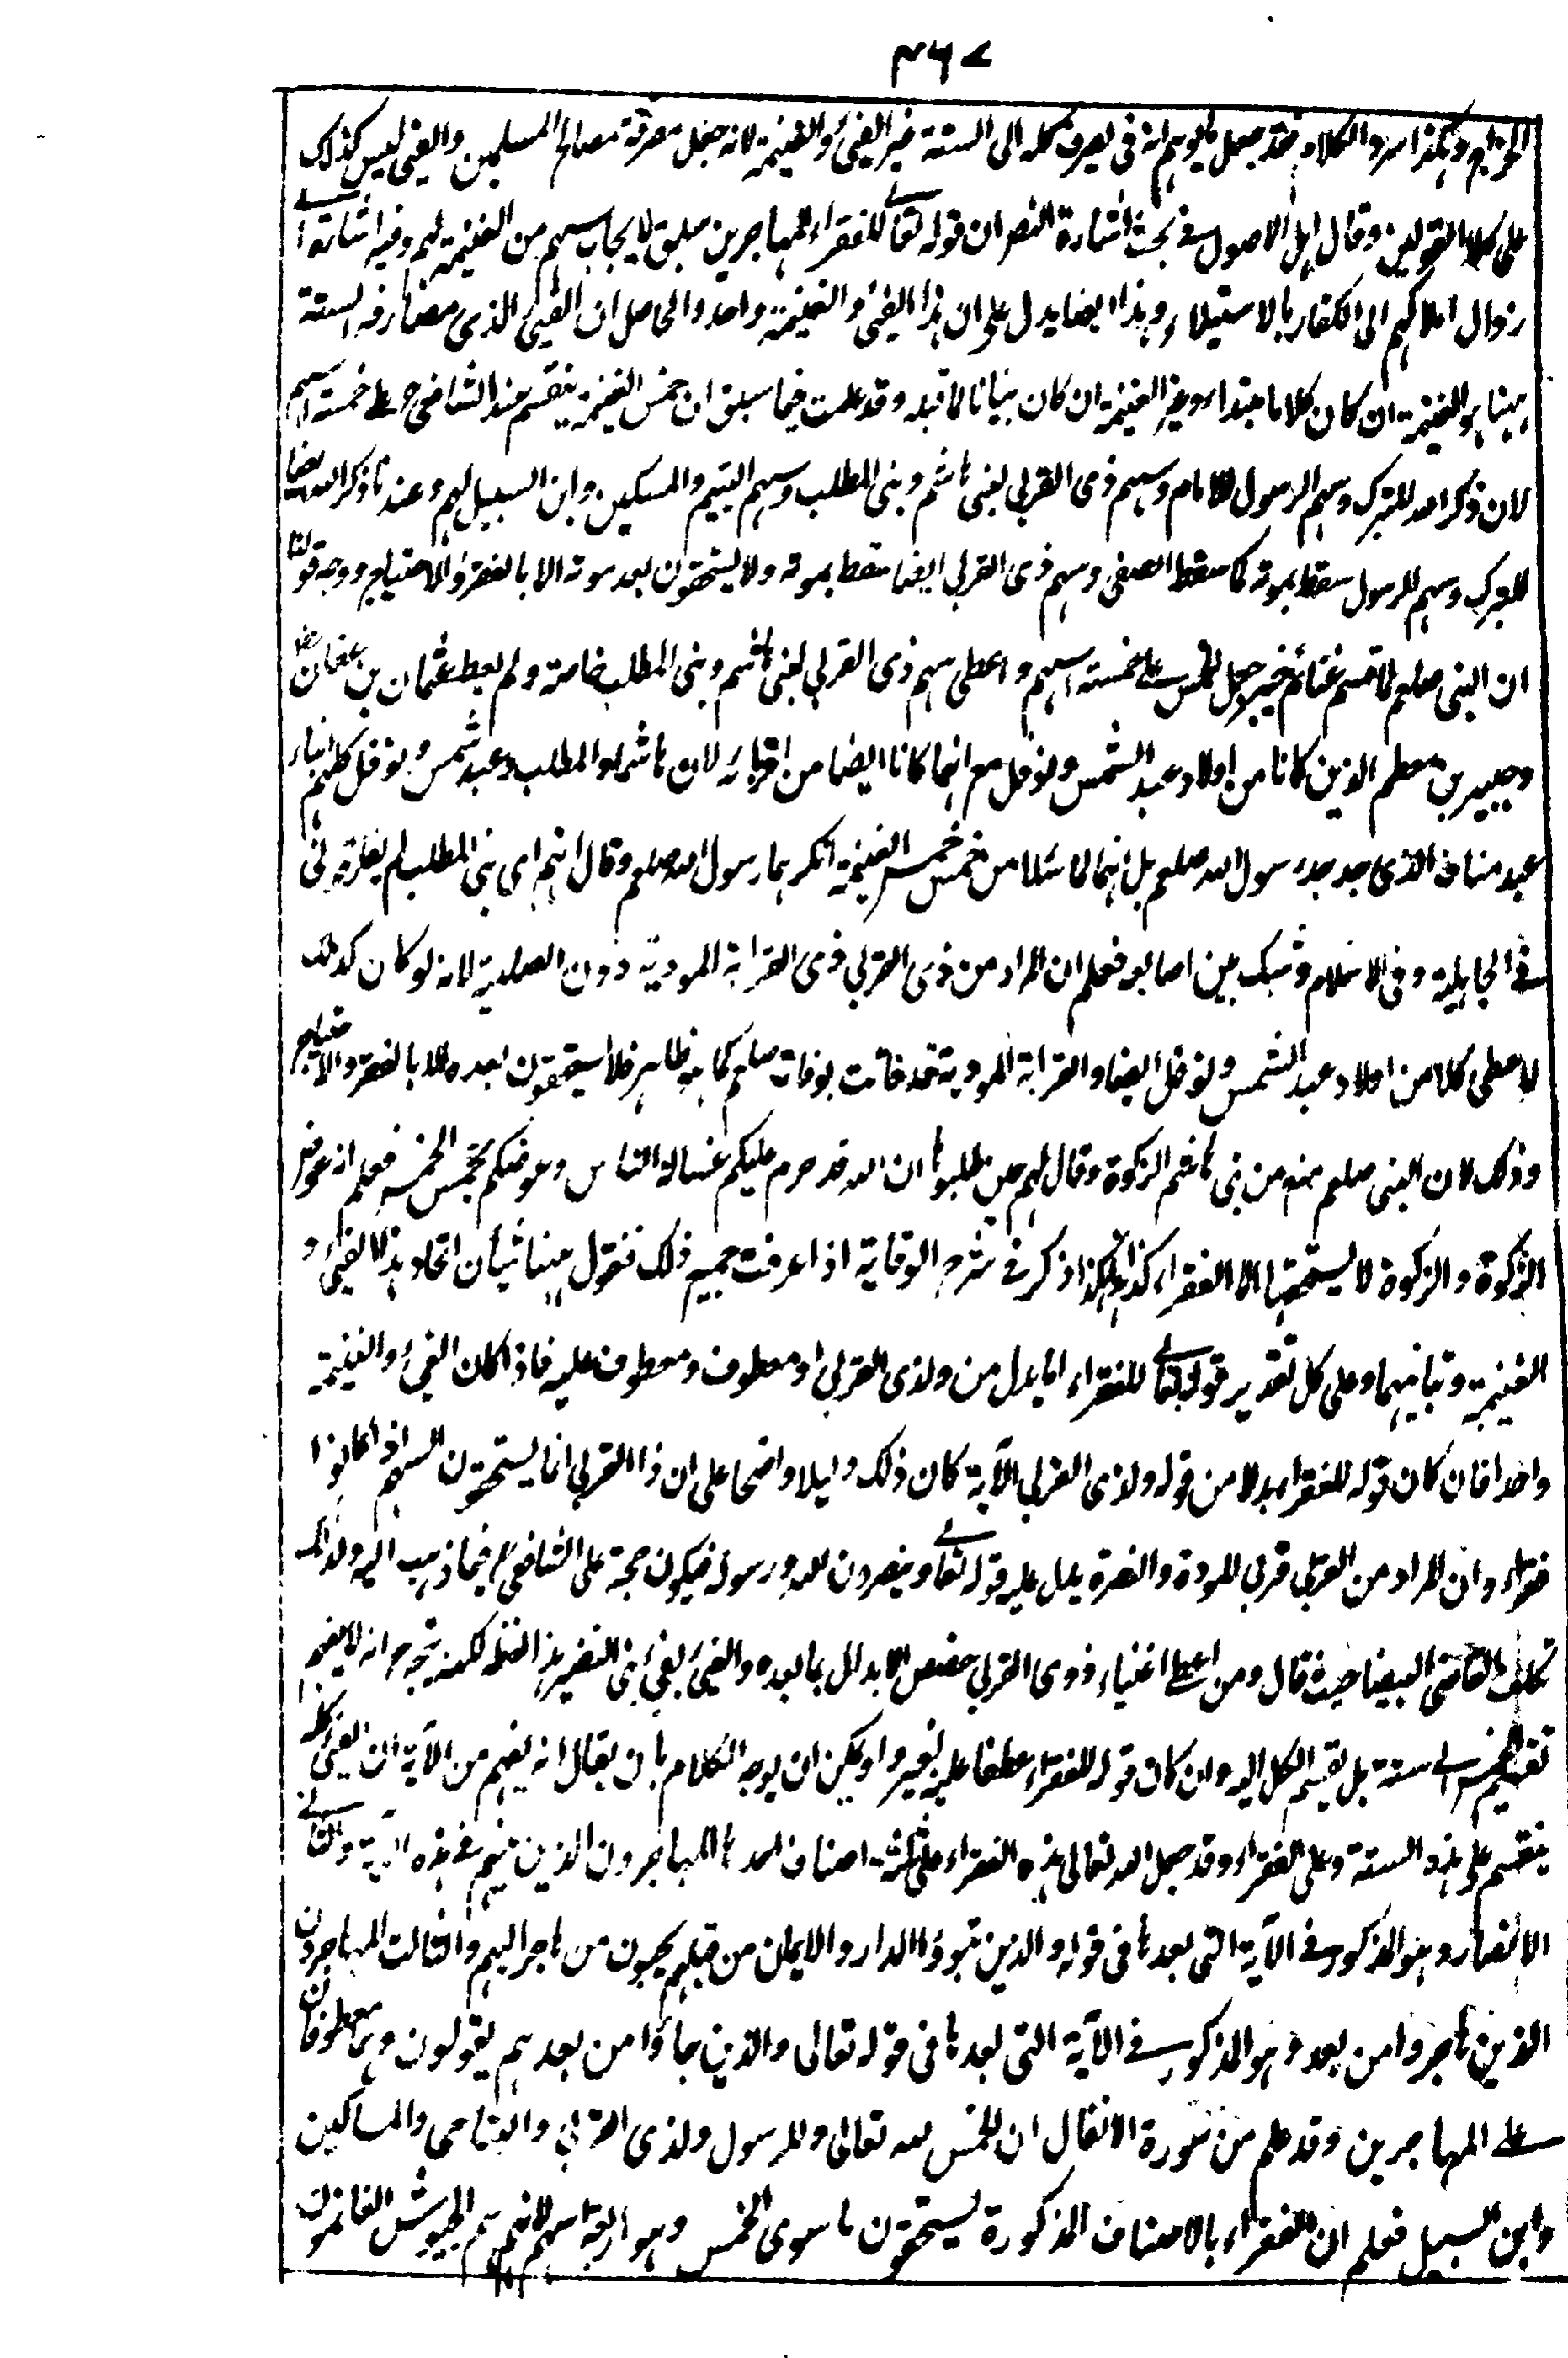 ٣٦٧
الخراج وهكذا سرد الكلام فقد جعل انه في يصرف كله الى الستة غير الفئ والغنيمة لانه جعل مصرفه مصالح المسلمين والفئ ليس كذلك
على كلا القولين وقال اهل الاصول في بحث اشارة النص ان قوله تعالى للفقراء المهاجرين سيق لايجاب سهم من الغنيمة لهم وفيه اشارة الى
زوال املاكهم الى الكفار بالاستيلاء وهذا ايضا يدل على ان هذا الفئ والغنيمة واحد والحاصل ان الفئ الذى مصارفه الستة
ههنا هو الغنيمة ان كان كلاما مبتدا وغير الغنيمة ان كان بيانا لما قبله وقد علمت فيما سبق ان خمس الغنيمة يقسم عند الشافعى رح على خمسة اسهم
لان ذكر الله للتبرك وسهم الرسول للامام وسهم ذى القربى لبنى هاشم وبنى المطلب وسهم اليتيم والمسكين وابن السبيل لهم وعندنا ذكر الله ايضا
للتبرك وسهم الرسول سقط بموته كما سقط الصفى وسهم ذى القربى ايضا سقط بموته ولا يستحقون بعد موته الا بالفقر والاحتياج ووجه قولنا
ان النبى صلعم لما قسم غنائم خيبر جعل الخمس على خمسة اسهم واعطى سهم ذى القربى لبنى هاشم وبنى المطلب خاصة ولم يعط عثمان بن عفان رض
وجبير بن مطعم الذين كانا من اولاد عبد الشمس ونوفل مع انهما كانا ايضا من اقربائه لان هاشما والمطلب وعبد شمس ونوفل كلهم ابناء
عبد مناف الذى جد جد رسول الله صلعم بل انهما لما سئلا من خمس خمس الغنيمة انكرهما رسول الله صلعم وقال انهم اى بنى المطلب لم يفارقونى
فى الجاهلية وفى الاسلام وشبك بين اصابعه فعلم ان المراد من ذى القربى ذى القرابة المودية دون الصلبية لانه لو كان كذلك
لاعطى كلا من اولاد عبد الشمس ونوفل ايضا والقرابة المودية قد فاتت بوفات صلعم كما هو ظاهر فلا يستحقون بعده الا بالفقر والاحتياج
وذلك لان النبى صلعم منع من بنى هاشم الزكوة وقال لهم حين طلبوا ان الله قد حرم عليكم غسالة الناس وعوضكم بخمس الخمس فعلم انه عوض
الزكوة والزكوة لا يستحقها الا الفقراء كذا هكذا ذكر فى شرح الوقاية اذا عرفت جميع ذلك فنقول ههنا شيأن اتحاد هذا الفئ و
الغنيمة وتباينهما وعلى كل تقدير قوله تعالى للفقراء اما بدل من ولذى القربى او معطوف ومعطوف عليه فاذا كان الفئ والغنيمة
واحدا فان كان قوله للفقراء بدلا من قوله ولذى القربى الآية كان ذلك دليلا واضحا على ان ذا القربى انما يستحقون السهم اذا كانوا
فقراء وان المراد من القربى قربى المودة والنصرة يدل عليه قوله تعالى وينصرون الله ورسوله فيكون حجة على الشافعى رح فيما ذهب اليه ولذلك
تكلف القاضى البيضا حيث قال ومن اعطى اغنياء ذوى القربى خصص الابدال بما بعده والفئ بفئ بنى النضير هذا لفظه لكنه يتجه ح انه لا يفهم
تقسيم الخمس الى ستة بل يقسم الكل اليه وان كان قوله للفقراء عطفا عليه بغير واو يمكن ان يوجه الكلام بان يقال انه يفهم من الآية ان الفئ كله
ينقسم على هذه الستة وعلى الفقراء وقد جعل الله تعالى هذه الفقراء على ثلثة اصناف احدها المهاجرون الذين هم فى هذه الآية والثانى
الانصار وهو المذكور فى الآية التى بعدها فى قوله والذين تبوؤا الدار والايمان من قبلهم يحبون من هاجر اليهم والثالث المهاجرون
الذين هاجروا من بعد وهو المذكور فى الآية التى بعدها فى قوله تعالى والذين جاؤا من بعدهم يقولون وهما معطوفان
على المهاجرين وقد علم من سورة الانفال ان الخمس لله تعالى وللرسول ولذى القربى واليتامى والمساكين
وابن السبيل فعلم ان الفقراء بالاصناف المذكورة يستحقون ما سوى الخمس وهو اربعة اسهم لانهم هم الجيوش الغانمون